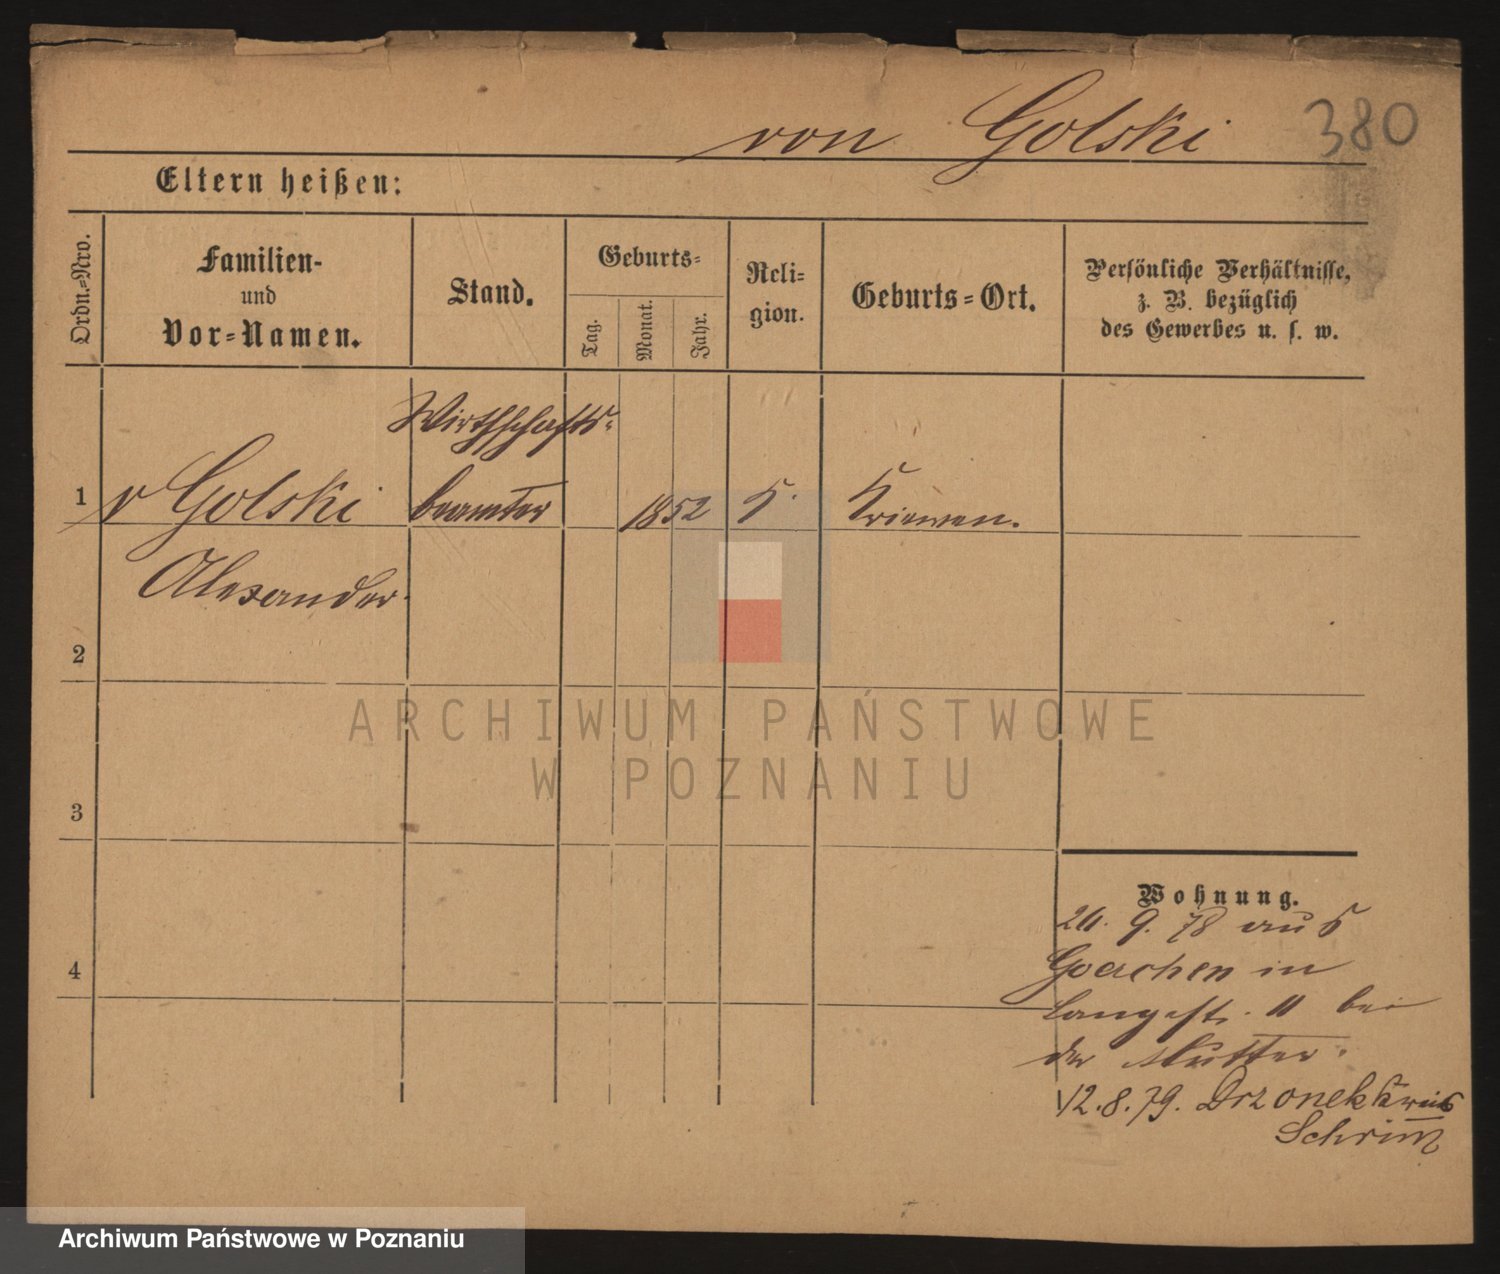 von Golski 380
Eltern heißen:
Ordn.-Nro.
Familien-
und
Vor-Namen.
Stand.
Geburts-
Tag.
Monat.
Jahr.
Reli-
gion.
Geburts-Ort.
Persönliche Verhältnisse,
z. B. bezüglich
des Gewerbes u. s. w.
Wirthschafts-
1 v Golski beamter 1852 K. Kriewen.
Alexander.
2
3
4
ARCHIWUM PAŃSTWOWE
W POZNANIU
Wohnung.
9. 78 aus
in
Langestr. 11 bei
der Mutter.
12.8.79. Drzonek Kreis
Schrimm
Archiwum Państwowe w Poznaniu